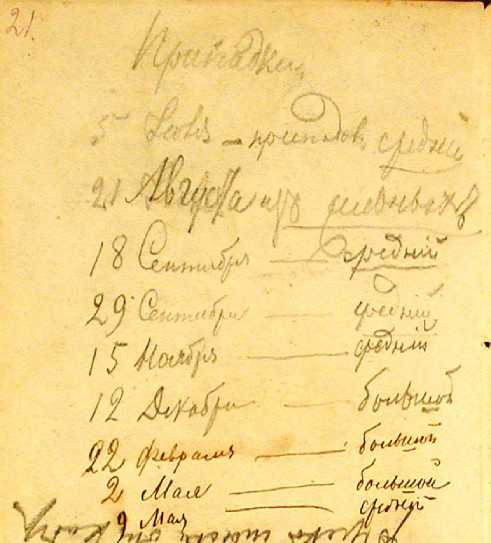 21.
Припадки
5 – припадокъ средній
21 Августа изъ
18 Сентября — средній
29 Сентября — средній
15 Ноября — средній
12 Декабря — большой
22 Февраля — большой
2 Мая — большой
Мая средній